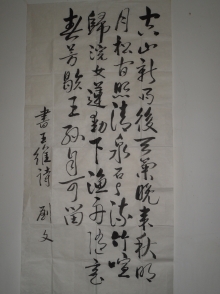 空山新雨後天氣晚來秋明
月松間照清泉石上流竹喧
歸浣女蓮動下漁舟隨意
春芳歇王孫自可留
書王維詩 文